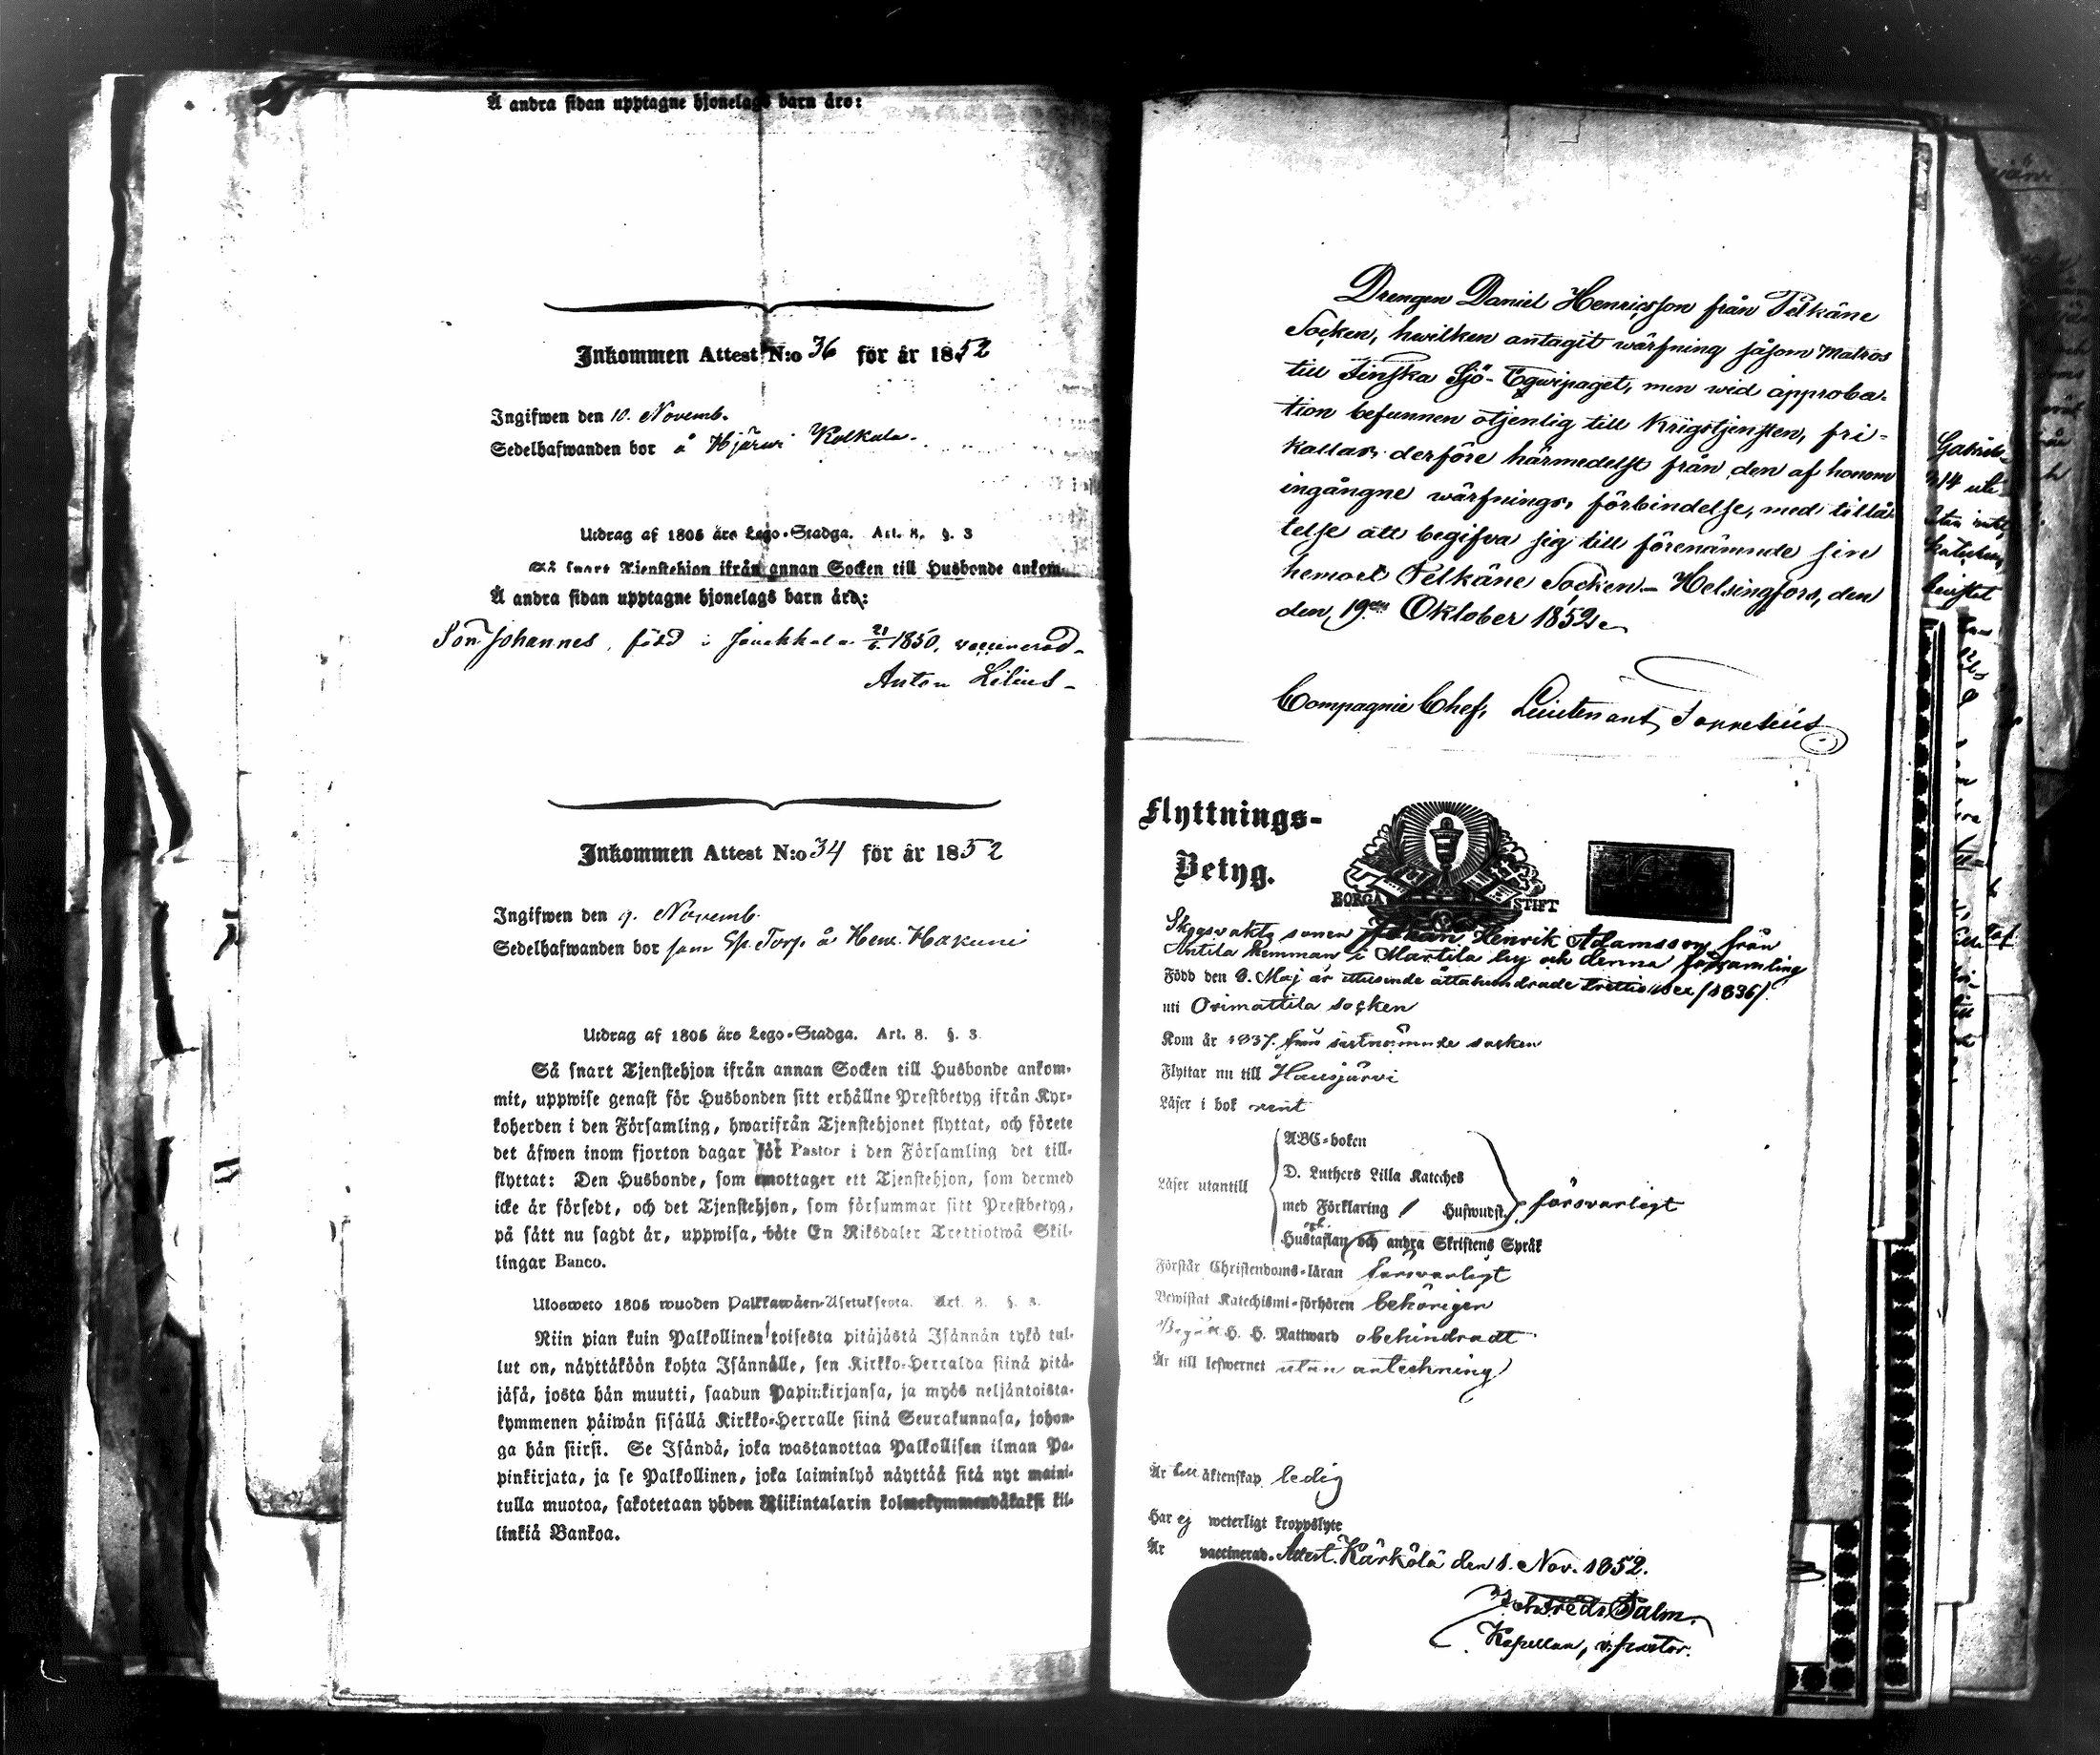 Å andra sidan upptagne hjonelags barn äro:
Inkommen Attest N:o 36 för år 1852
Ingifwen den 10. Novemb.
Sedelhafwanden bor å Hjärvi Kolkala
Utdrag af 1805 års Lego-Stadga. Art. 8. §. 3
Så snart Tjenstehjon ifrån annan Socken till Husbonde ankom-
Å andra sidan upptagne hjonelags barn äro:
Son Johannes, född i Janakkala 21/6 1850, vaccinerad
Anton Lilius
Inkommen Attest N:o 34 för år 1852
Ingifwen den 9. Novemb.
Sedelhafwanden bor som Sp. Torp. å Hakuni
Utdrag af 1805 års Lego-Stadga. Art. 8. §. 3.
Så snart Tjenstehjon ifrån annan Socken till Husbonde ankom-
mit, uppwise genast för Husbonden sitt erhållne Prestbetyg ifrån Kyr-
koherden i den Församling, hwarifrån Tjenstehjonet flyttat, och förete
det äfwen inom fjorton dagar för Pastor i den Församling det till-
flyttat: Den Husbonde, som emottager ett Tjenstehjon, som dermed
icke är försedt, och det Tjenstehjon, som försummar sitt Prestbetyg,
på sätt nu sagdt är, uppwisa, böte En Riksdaler Trettiotwå Skil-
lingar Banco.
Ulosweto 1805 wuoden Palkkawäen-Asetuksesta. Art. 8. §. 3.
Niin pian kuin Palkollinen toisesta pitäjästä Isännän tykö tul-
lut on, näyttäköön kohta Isännälle, sen Kirkko-Herralda siinä pitä-
jäsä, josta hän muutti, saadun Papinkirjansa, ja myös neljäntoista-
kymmenen päiwän sisällä Kirkko-Herralle siinä Seurakunnasa, johon-
ga hän siirsi. Se Isändä, joka wastanottaa Palkollisen ilman Pa-
pinkirjata, ja se Palkollinen, joka laiminlyö näyttää sitä nyt maini-
tulla muotoa, sakotetaan yhden Riikintalarin kolmekymmendäkaksi kil-
linkiä Bankoa.
Drengen Daniel Henricsson från Pelkäne
Socken, hwilken antagit wärfning såsom Matros
till Finska Sjö-Equipaget, men wid approba-
tion befunnen otjenlig till Krigstjensten, fri-
kallas derföre härmedelst från den af honom
ingångne wärfnings förbindelse, med tillå-
telse att begifva sig till förenämnde sin
hemort Pelkäne Socken. Helsingfors, den
den 19de Oktober 1852.
Compagnie Chef, Lieutenant
Flyttnings-
Betyg.
BORGÅ STIFT
Skogsvakts sonen Johan Henrik Adamsson från
Antila hemman i Martila by och denna församling
Född den 8. Maj år ettusende åttahundrade trettio sex (1836)
uti Orimattila socken
Kom år 1837 från sistnämnde socken
Flyttar nu till Hausjärvi
Läser i bok rent
Läser utantill
ABC-boken
D. Luthers Lilla Kateches
med Förklaring / Hufwudst.
Hustaflan och andra Skriftens Språk
försvarligt
Förstår Christendoms-läran försvarligt
Bewistat Katechismi-förhören behörigen
Begått H. H. Nattward obehindradt
Är till lefwernet utan anteckning
Är till äktenskap ledig
Har ej weterligt kroppslyte
Är vaccinerad. Attest. Kärkölä den 1. Nov. 1852.
Palm.
Kapellan, v. pastor.